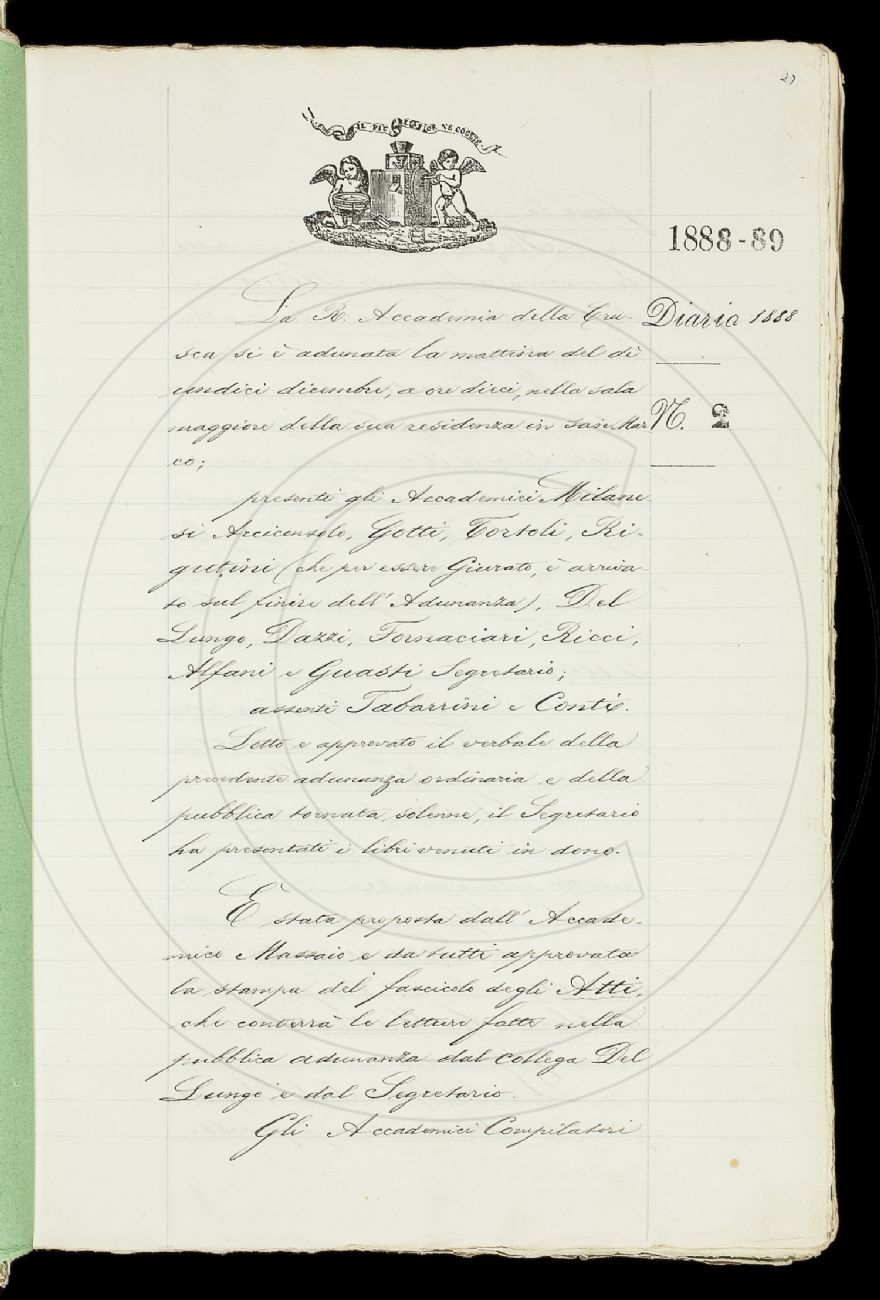 27
IL PIÙ BEL FIOR NE COGLIE
1888-89
Diario 1888
N. 2
La R. Accademia della Cru-
sca si è adunata la mattina del dì
undici dicembre, a ore dieci, nella sala
maggiore della sua residenza in San Mar
co;
presenti gli Accademici Milane-
si Arciconsolo, Gotti, Tortoli, Ri-
gutini (che per essere Giurato, è arriva-
to sul finire dell' Adunanza), Del
Lungo, Dazzi, Fornaciari, Ricci,
Alfani e Guasti Segretario;
assenti Tabarrini e Conti.
Letto e approvato il verbale della
precedente adunanza ordinaria e della
pubblica tornata solenne, il Segretario
ha presentati i libri venuti in dono.
È stata proposta dall' Accade-
mico Massaio e da tutti approvata
la stampa del fascicolo degli Atti,
che conterrà le letture fatte nella
pubblica adunanza dal collega Del
Lungo e dal Segretario.
Gli Accademici Compilatori